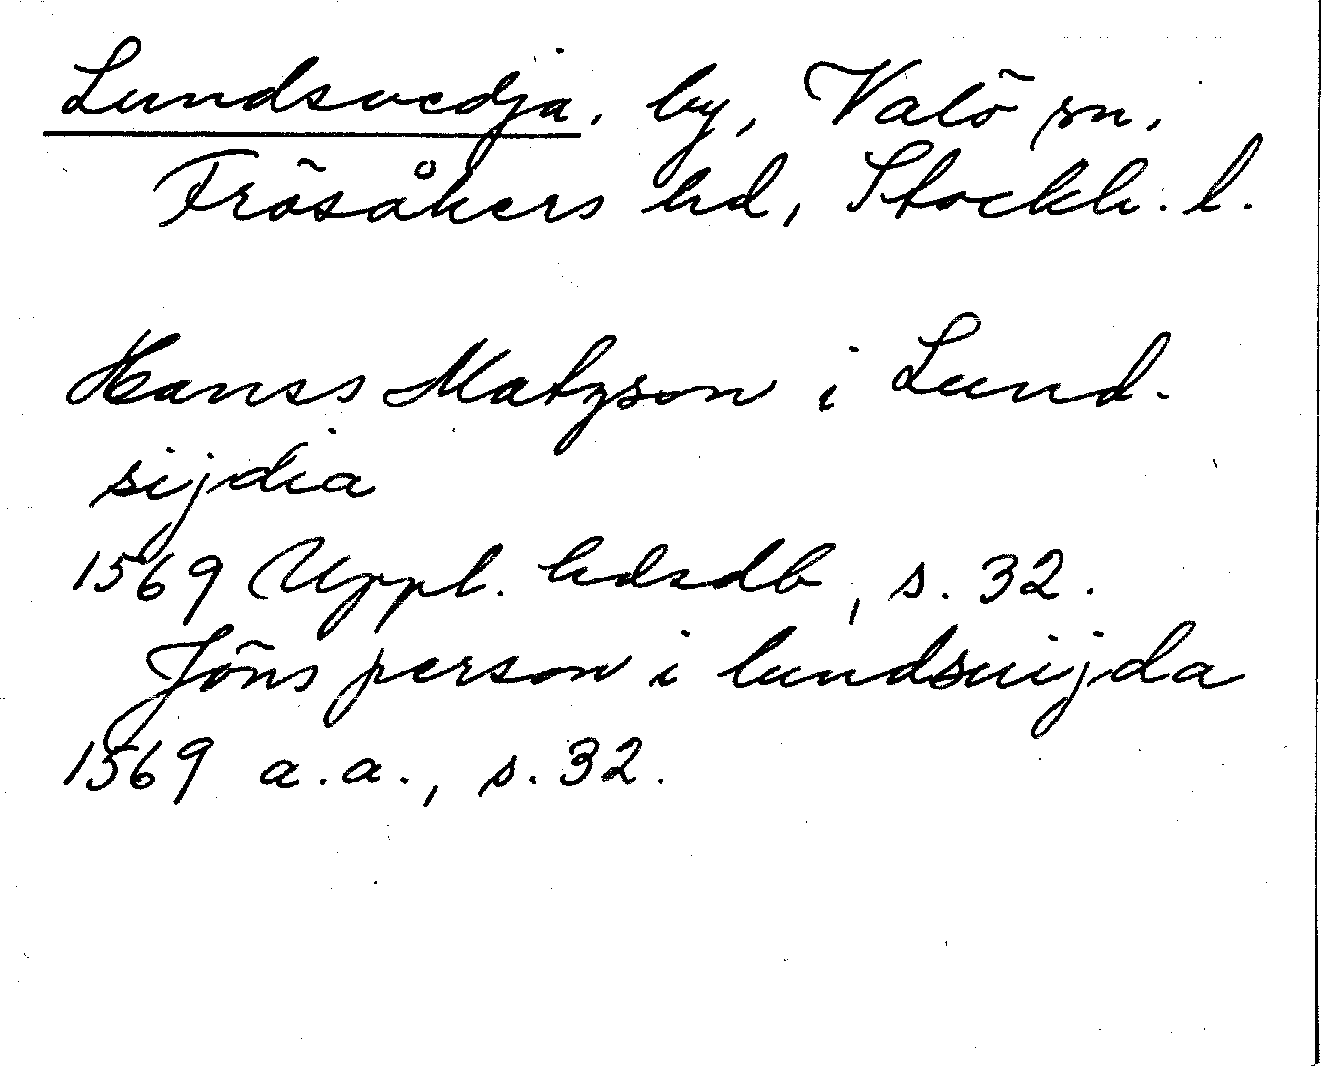 Lundsvedja, by, Valö sn,
Frösåkers hd, Stockh. l.
Hanss Matzson i Lund-
sijdia
1569 Uppl. hdsdb, s. 32.
Jöns person i lundsuijda
1569 a.a., s. 32.